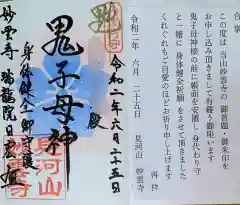 合掌
この度は当山妙雲寺の御首題・御朱印を
お申し込み頂きまして有り難う御座います
鬼子母神様の前に帳面を安置し身代わり守
と一緒に身体健全祈願をさせて頂きました
くれぐれもご自愛のほどお祈り申し上げます
再拝
令和二年 六月 二十五日
見河山 妙雲寺
令和二年六月二十五日
殿
鬼子母神
身体健全御守護
妙雲寺 瑞龍院日
見河山
妙雲寺